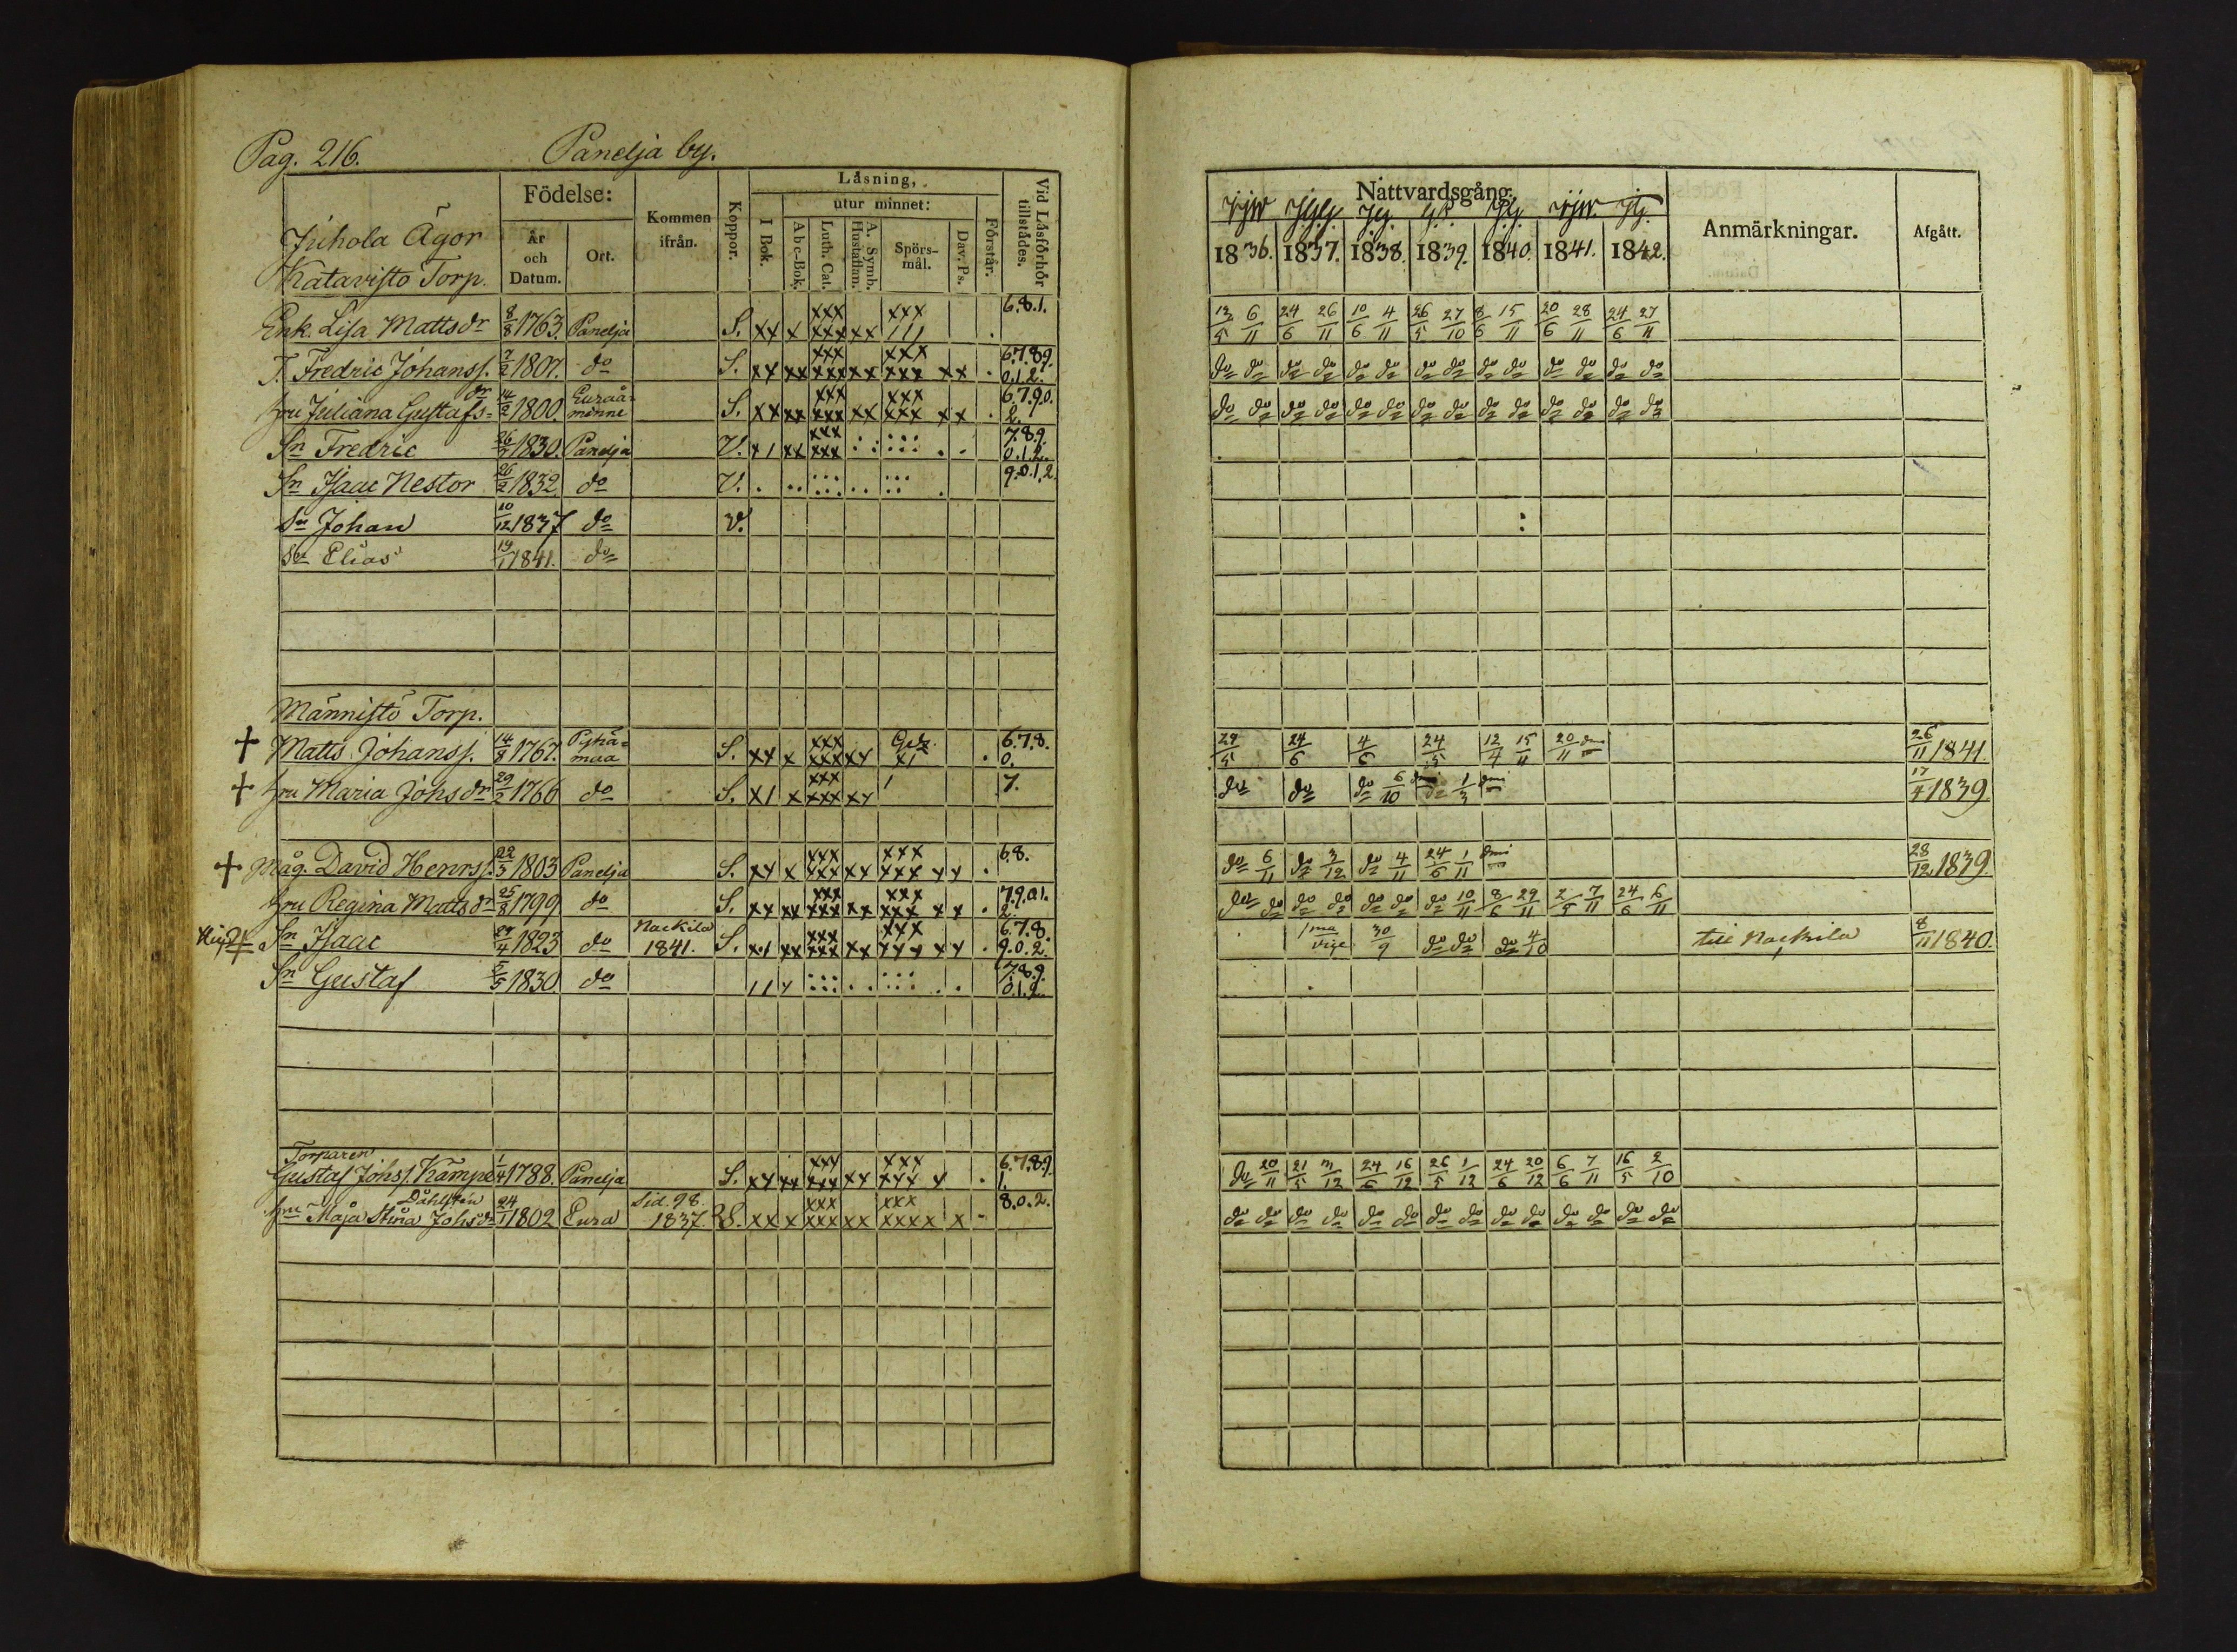 Pag. 216. Panelja by.
Juhola Ägor
Katavisto Torp.
Födelse:
År och Datum.
Ort.
Kommen ifrån.
Koppor.
Läsning,
I Bok.
utur minnet:
Abc-Bok.
Luth. Cat.
A. Symb. Hustaflan.
Spörs-mål.
Dav. Ps.
Förstår.
Vid Läsförhör tillstädes.
Enk. Lisa Mattsdr 8/8 1763. Panelja S. xx x xxx xxx xx xxx 111 . 6.8.1.
T. Fredric Johanss. 7/2 1807. do S. xx xx xxx xxx xx xxx xxx xx . 6.7.8.9. 0.1.2.
hru Juliana Gustafs=dr 14/2 1800. Euraå=minne S. xx xx xxx xxx xx xxx xxx xx . 6.7.9.0. 2.
Sn Fredric 1830. Panelja V. x1 xx xxx xxx 7.8.9. 0.1.2.
Sn Isaac Nestor 26/2 1832. do V. 9.0.1.2.
Sn Johan 10/12 1837 do V.
Sn Elias 19/1 1841. do
Männistö Torp.
† Matts Johanss. 14/8 1767. Pyhä=maa S. xx x xxx xxx xx x1 . 6.7.8. 0.
† hru Maria Johsdr 29/2 1766 do S. x1 x xxx xxx xx 1 7.
† Måg. David Henrss. 22/5 1803 Panelja S. xx x xxx xxx xx xxx xxx xx . 6.8.
hru Regina Mattsdr 25/8 1799 do S. xx xx xxx xxx xx xxx xxx xx . 7.9.0.1. 2.
Sn Isaac 27/4 1823 do Nackila 1841. S. x1 xx xxx xxx xx xxx xxx xx . 6.7.8. 9.0.2.
Sn Gustaf 5/5 1830 do 11 x 7.8.9. 0.1.2.
Torparen
Gustaf Johss. Kämpe 1/4 1788. Panelja S. xx xx xxx xxx xx xxx xxx x . 6.7.8.9. 1.
Dahlsten
hru Maja Stina Johsdr 24/1 1802 Eura Sid. 98. 1837. S. xx x xxx xxx xx xxx xxxx x 8.0.2.
Nattvardsgång.
1836. 1837. 1838. 1839. 1840. 1841. 1842.
Anmärkningar.
Afgått.
13/5 6/11 24/6 26/11 10/6 4/11 26/5 27/10 8/6 15/11 20/6 28/11 24/6 27/11
do do do do do do do do do do do do do do
do do do do do do do do do do do do do do
29/5 24/6 4/6 24/5 12/4 15/11 20/11 26/11 1841.
do do do 6/10 do 1/3 17/4 1839.
do 6/11 do 3/12 do 4/11 24/6 1/11 28/12 1839.
do do do do do do do 10/11 8/6 29/11 2/5 7/11 24/6 6/11
1ma vice 30/9 do do do 4/10 till Nackila 8/11 1840.
do 20/11 21/5 3/12 24/6 16/12 26/5 1/12 24/6 20/12 6/6 7/11 16/5 2/10
do do do do do do do do do do do do do do